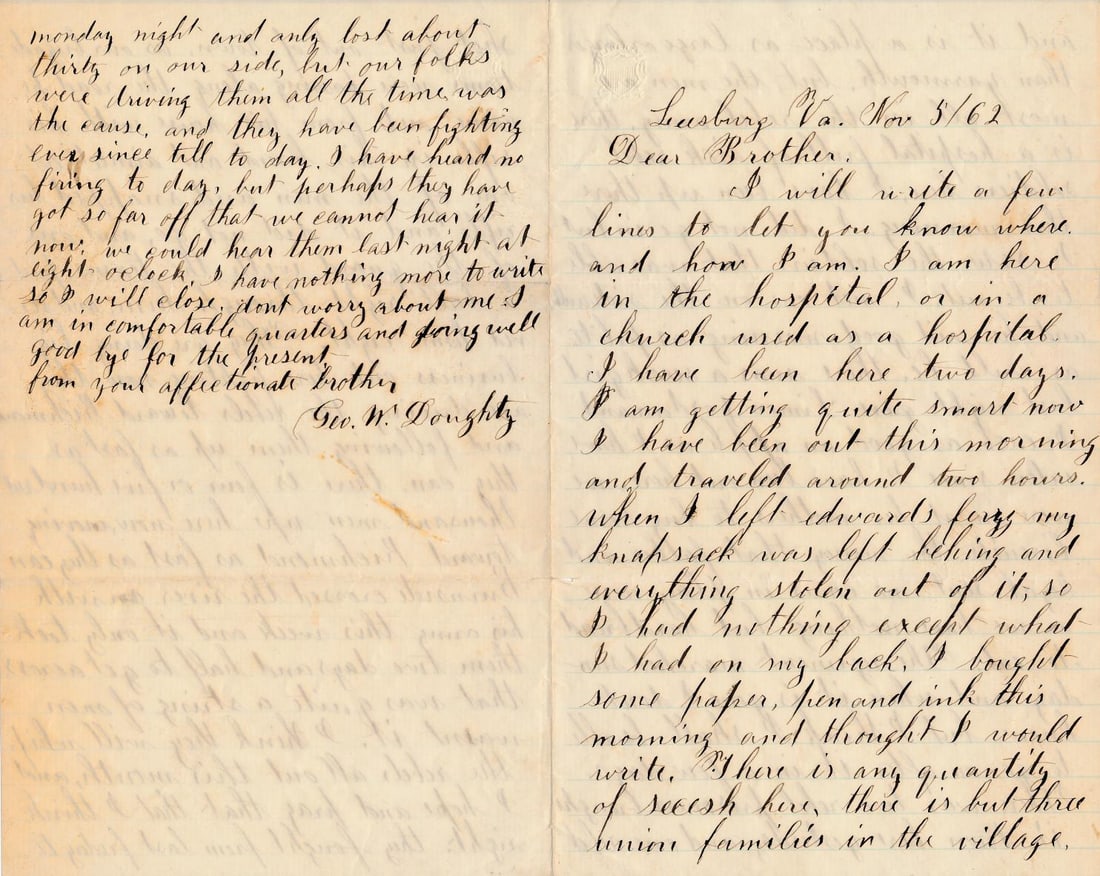 monday night and only lost about
thirty on our side, but our folks
were driving them all the time was
the cause, and they have been fighting
ever since till to day. I have heard no
firing to day, but perhaps they have
got so far off that we cannot hear it
now. we could hear them last night at
eight oclock. I have nothing more to write
so I will close, dont worry about me. I
am in comfortable quarters and doing well
good bye for the present
from your affectionate brother
Geo. W. Doughty
Leesburg Va. Nov 5/62
Dear Brother.
I will write a few
lines to let you know where.
and how I am. I am here
in the hospital, or in a
church used as a hospital.
I have been here two days.
I am getting quite smart now
I have been out this morning
and traveled around two hours.
When I left edwards ferry my
knapsack was left behing and
everything stolen out of it, so
I had nothing except what
I had on my back. I bought
some paper, pen and ink this
morning and thought I would
write. There is any quantity
of secesh here, there is but three
union families in the village.